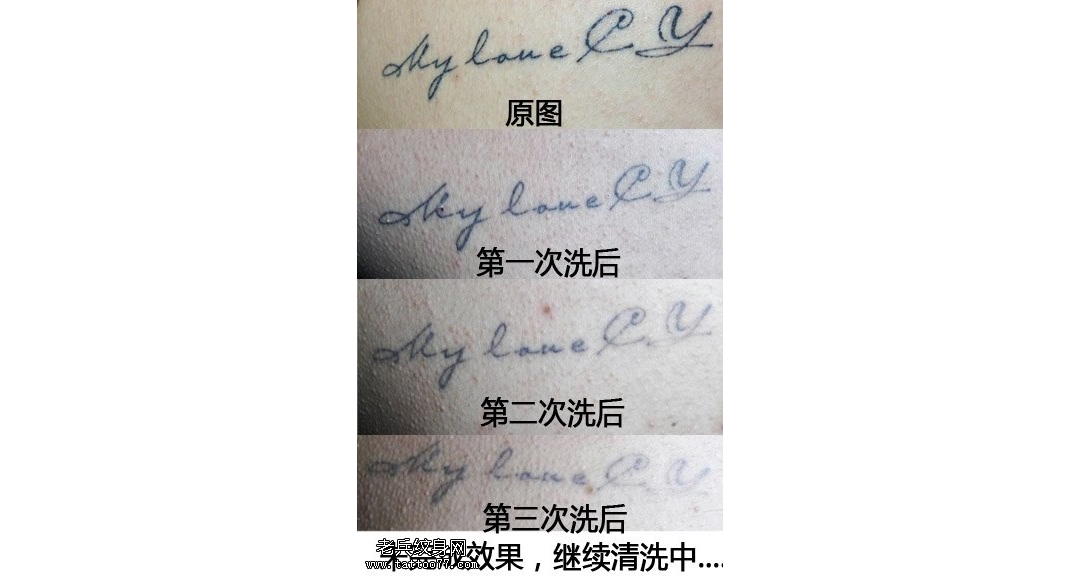 My love C Y
原图
My love C Y
第一次洗后
My love C Y
第二次洗后
My love C Y
第三次洗后
老兵纹身网
效果，继续清洗中....
www.tattoo77.com